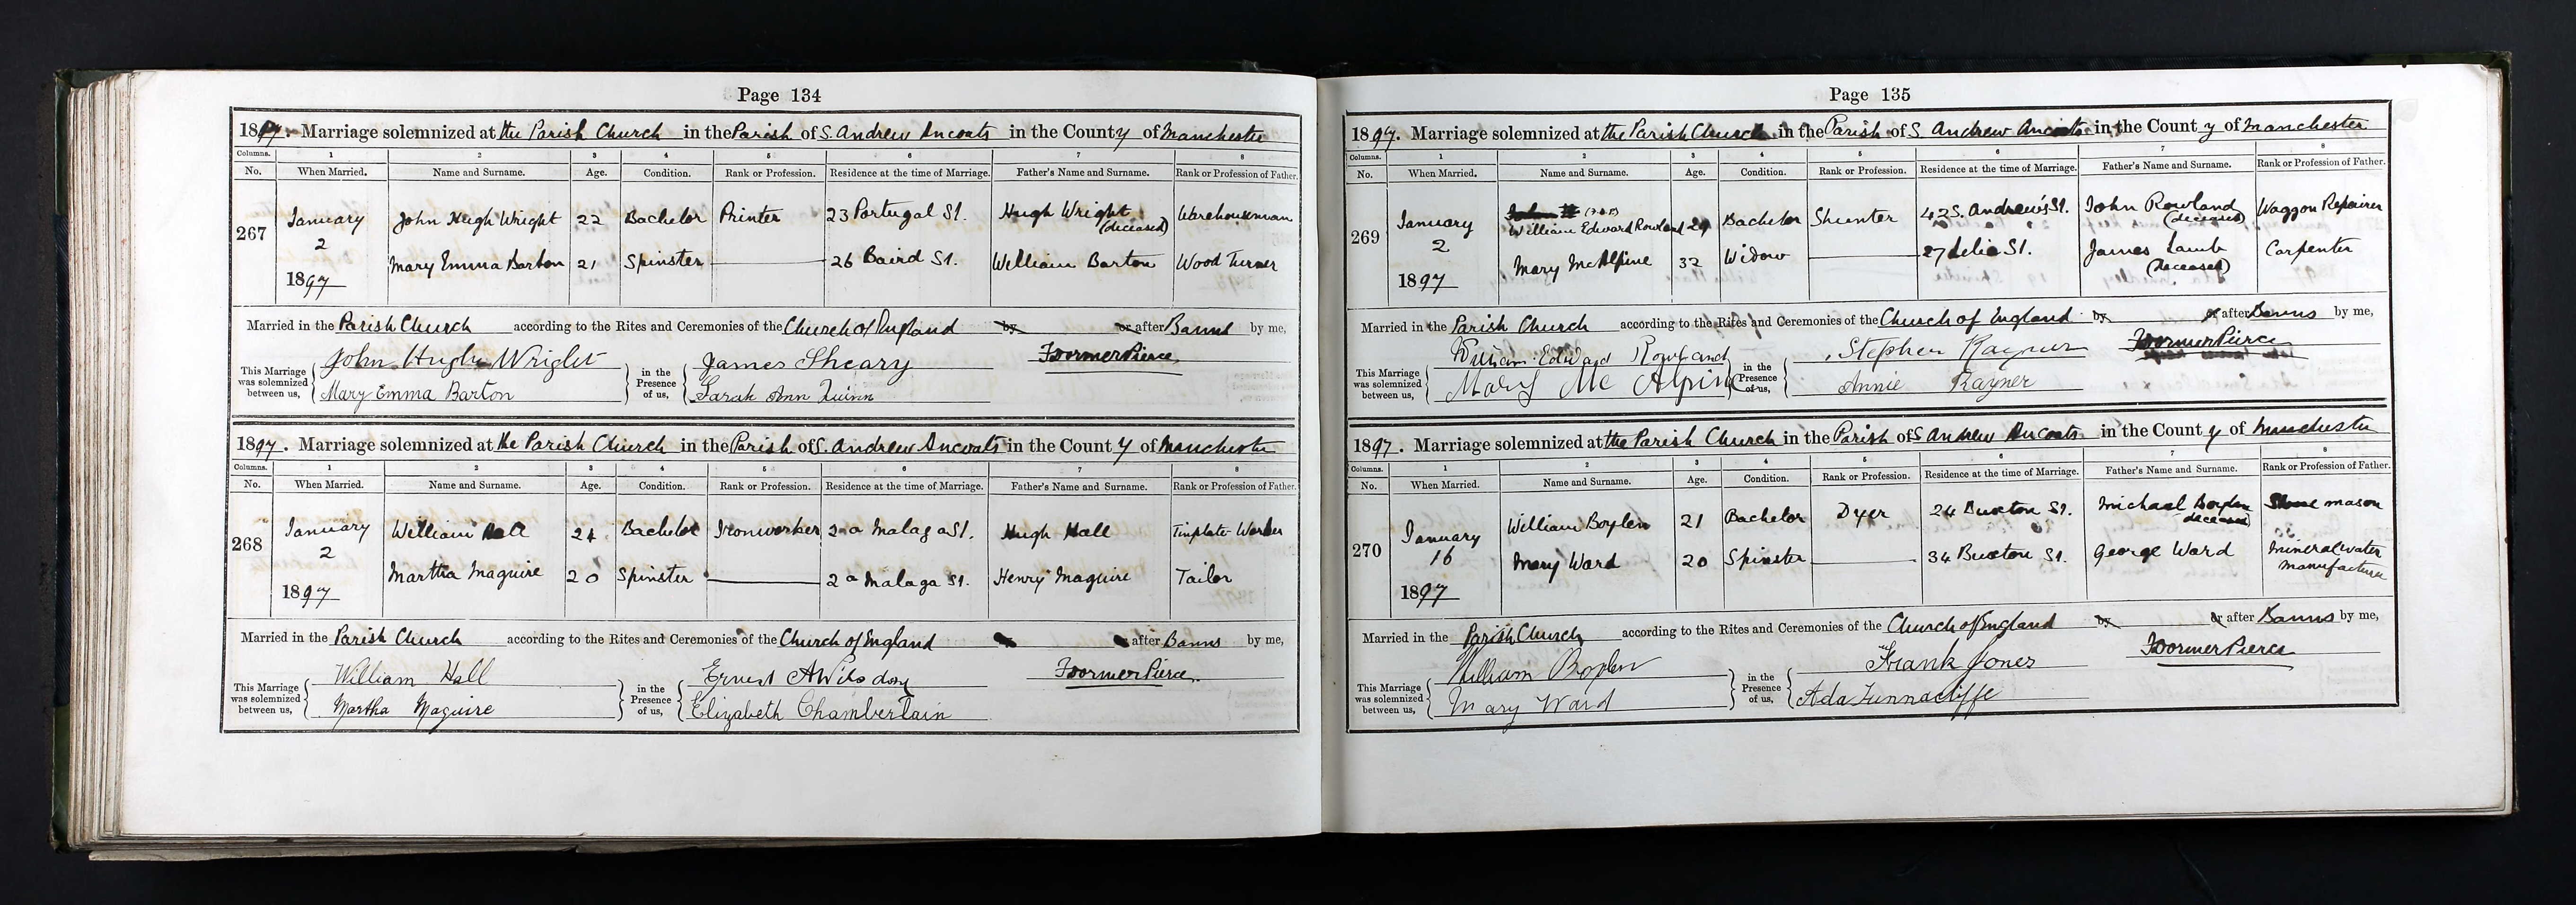 Page 134
1897. Marriage solemnized at the Parish Church in the Parish of S. Andrew Ancoats in the County of Manchester
Columns. 1 2 3 4 5 6 7 8
No. When Married. Name and Surname. Age. Condition. Rank or Profession. Residence at the time of Marriage. Father's Name and Surname. Rank or Profession of Father.
267 January 2 1897 John Hugh Wright 22 Bachelor Printer 23 Portugal St. Hugh Wright (deceased) Warehouseman
Mary Emma Barton 21 Spinster 26 Baird St. William Barton Wood Turner
Married in the Parish Church according to the Rites and Ceremonies of the Church of England by or after Banns by me,
This Marriage was solemnized between us, John Hugh Wright in the Presence of us, James Sheary F Dormer Pierce
Mary Emma Barton Sarah Ann Quinn
1897. Marriage solemnized at the Parish Church in the Parish of S. Andrew Ancoats in the County of Manchester
Columns. 1 2 3 4 5 6 7 8
No. When Married. Name and Surname. Age. Condition. Rank or Profession. Residence at the time of Marriage. Father's Name and Surname. Rank or Profession of Father.
268 January 2 1897 William Hall 24 Bachelor Ironworker 2a Malaga St. Hugh Hall Tinplate Worker
Martha Maguire 20 Spinster 2a Malaga St. Henry Maguire Tailor
Married in the Parish Church according to the Rites and Ceremonies of the Church of England after Banns by me,
This Marriage was solemnized between us, William Hall in the Presence of us, Ernest A F Dormer Pierce
Martha Maguire Elizabeth Chamberlain
Page 135
1897. Marriage solemnized at the Parish Church in the Parish of S. Andrew Ancoats in the County of Manchester
Columns. 1 2 3 4 5 6 7 8
No. When Married. Name and Surname. Age. Condition. Rank or Profession. Residence at the time of Marriage. Father's Name and Surname. Rank or Profession of Father.
269 January 2 1897 William Edward Rowland 29 Bachelor Shunter 42 S. Andrew's St. John Rowland (deceased) Waggon Repairer
Mary McAlpine 32 Widow 27 Lelia St. James Lamb (deceased) Carpenter
Married in the Parish Church according to the Rites and Ceremonies of the Church of England by or after Banns by me,
This Marriage was solemnized between us, William Edward Rowland in the Presence of us, Stephen Rayner F Dormer Pierce
Mary Mc Alpine Annie Rayner
1897. Marriage solemnized at the Parish Church in the Parish of S Andrew Ancoats in the County of Manchester
Columns. 1 2 3 4 5 6 7 8
No. When Married. Name and Surname. Age. Condition. Rank or Profession. Residence at the time of Marriage. Father's Name and Surname. Rank or Profession of Father.
270 January 16 1897 William Boylen 21 Bachelor Dyer 24 Buxton St. Michael Boylen deceased Stone mason
Mary Ward 20 Spinster 34 Buxton St. George Ward Mineral water manufacturer
Married in the Parish Church according to the Rites and Ceremonies of the Church of England by or after Banns by me,
This Marriage was solemnized between us, William Boylen in the Presence of us, Frank Jones F Dormer Pierce
Mary Ward Ada Tunnacliffe